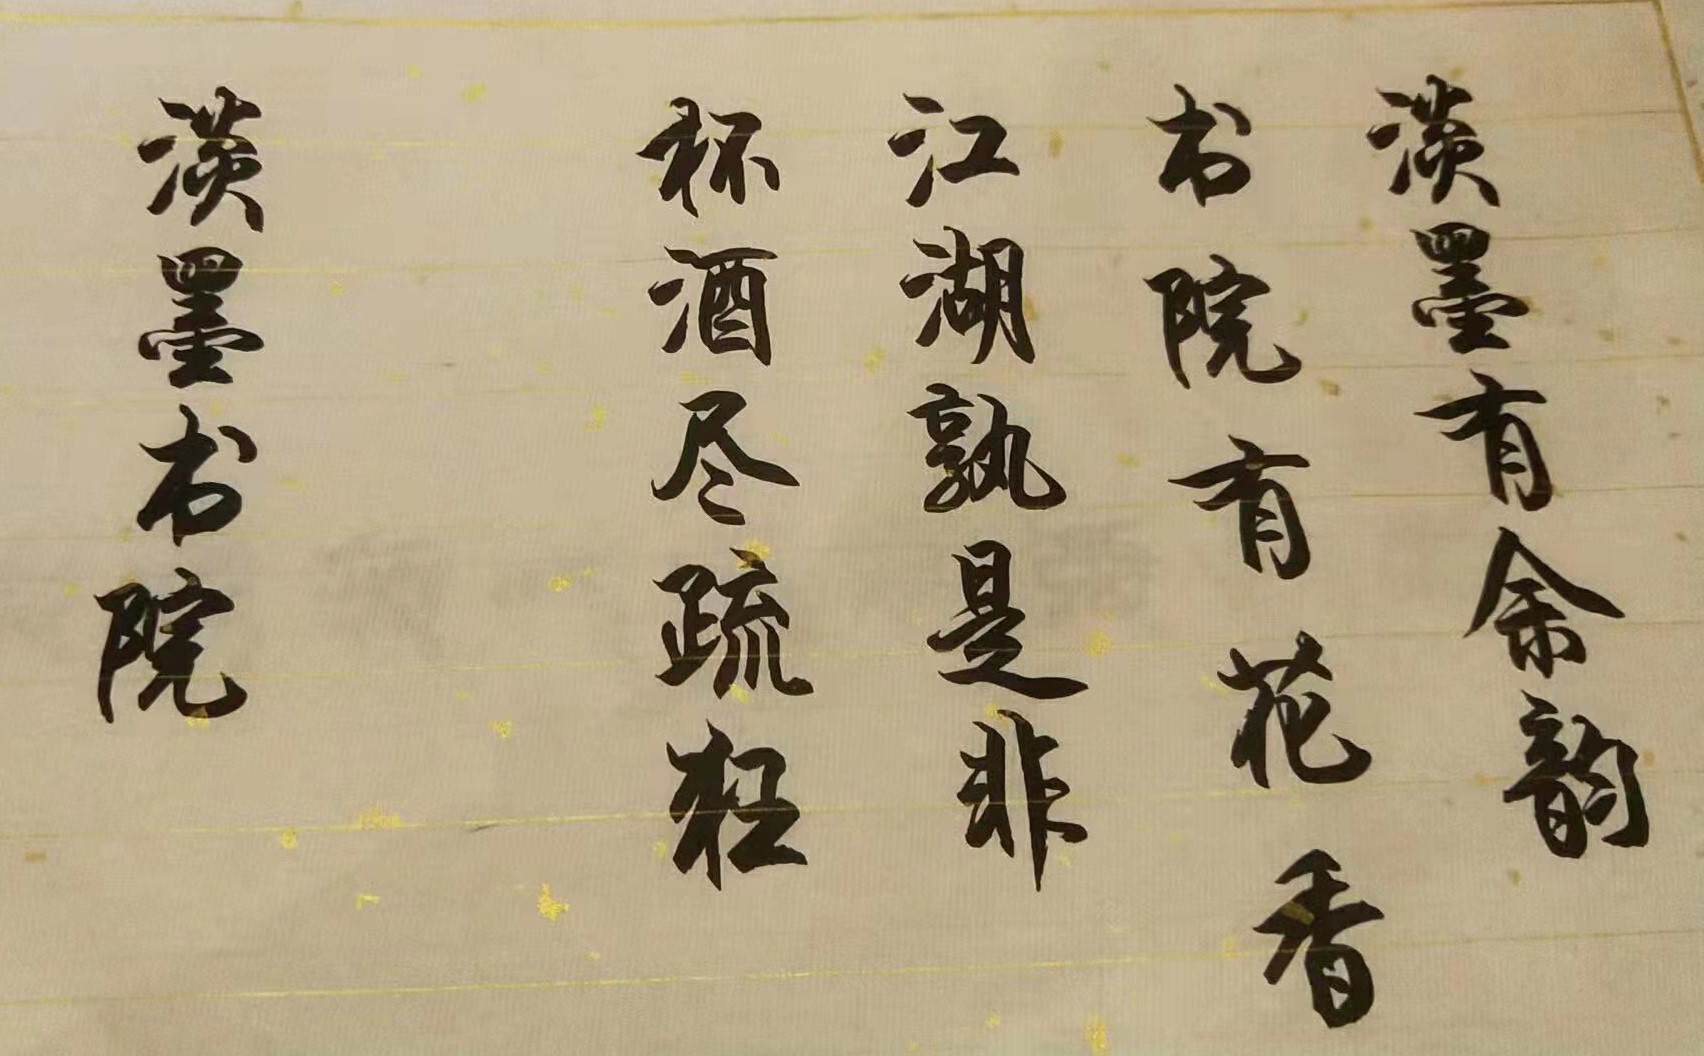 淡墨有余韵
书院有花香
江湖孰是非
杯酒尽疏狂
淡墨书院